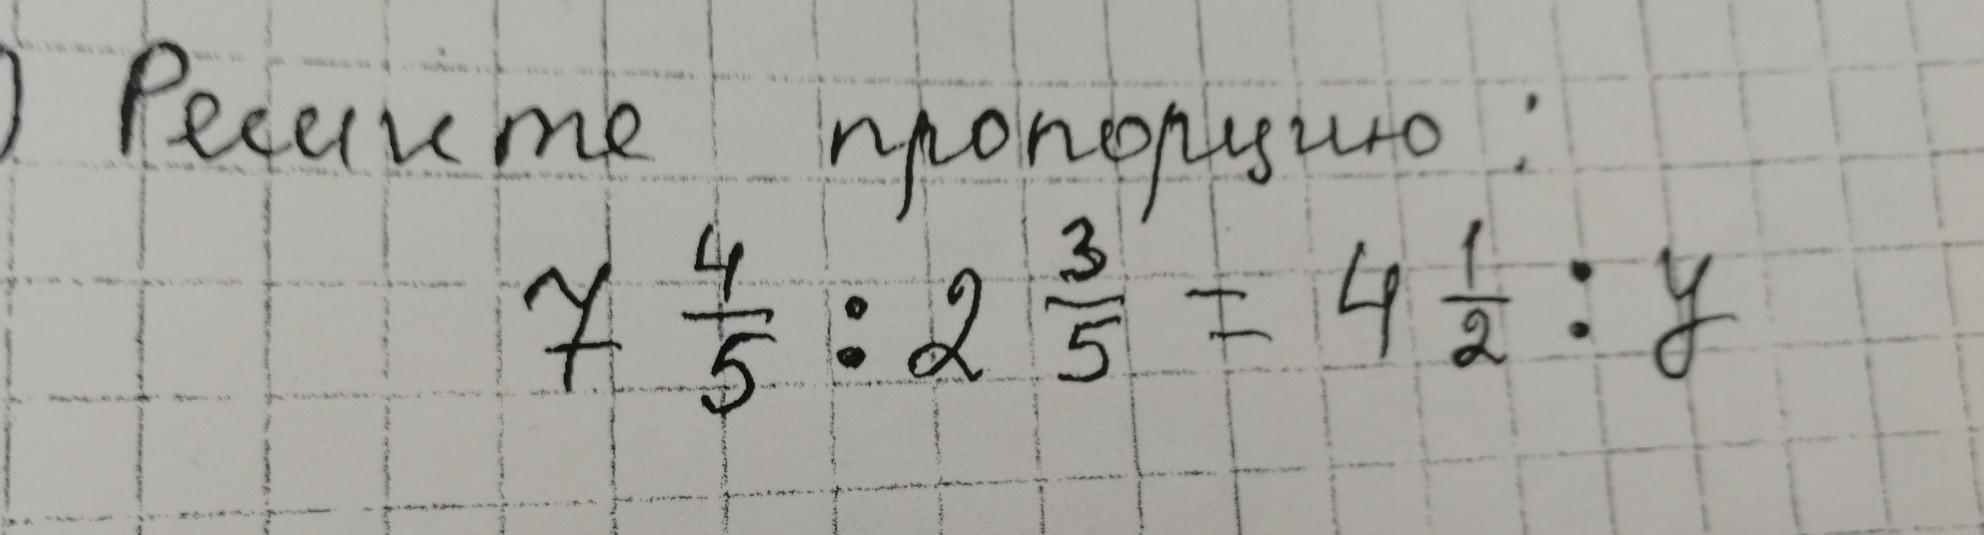 ) Решите пропорцию:
7 4/5 : 2 3/5 = 4 1/2 : y